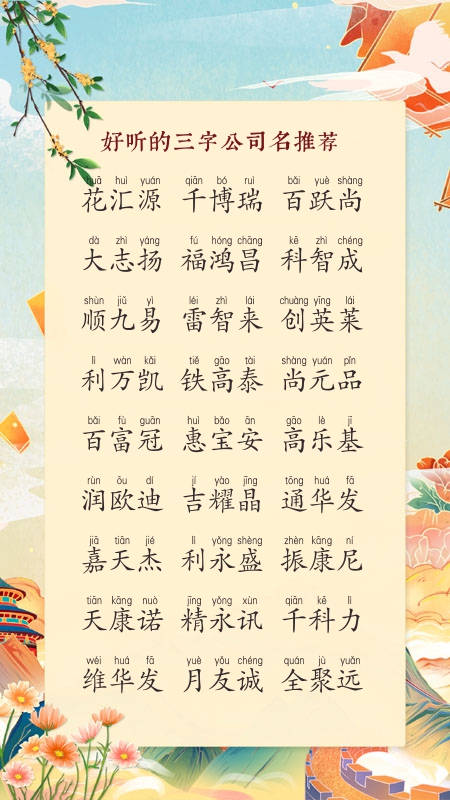 好听的三字公司名推荐
huā huì yuán qiān bó ruì bǎi yuè shàng
花汇源 千博瑞 百跃尚
dà zhì yáng fú hóng chāng kē zhì chéng
大志扬 福鸿昌 科智成
shùn jiǔ yì léi zhì lái chuàng yīng lái
顺九易 雷智来 创英莱
lì wàn kǎi tiě gāo tài shàng yuán pǐn
利万凯 铁高泰 尚元品
bǎi fù guān huì bǎo ān gāo lè jī
百富冠 惠宝安 高乐基
rùn ōu dí jí yào jīng tōng huá fā
润欧迪 吉耀晶 通华发
jiā tiān jié lì yǒng shèng zhèn kāng ní
嘉天杰 利永盛 振康尼
tiān kāng nuò jīng yǒng xùn qiān kē lì
天康诺 精永讯 千科力
wéi huá fā yuè yǒu chéng quán jù yuǎn
维华发 月友诚 全聚远